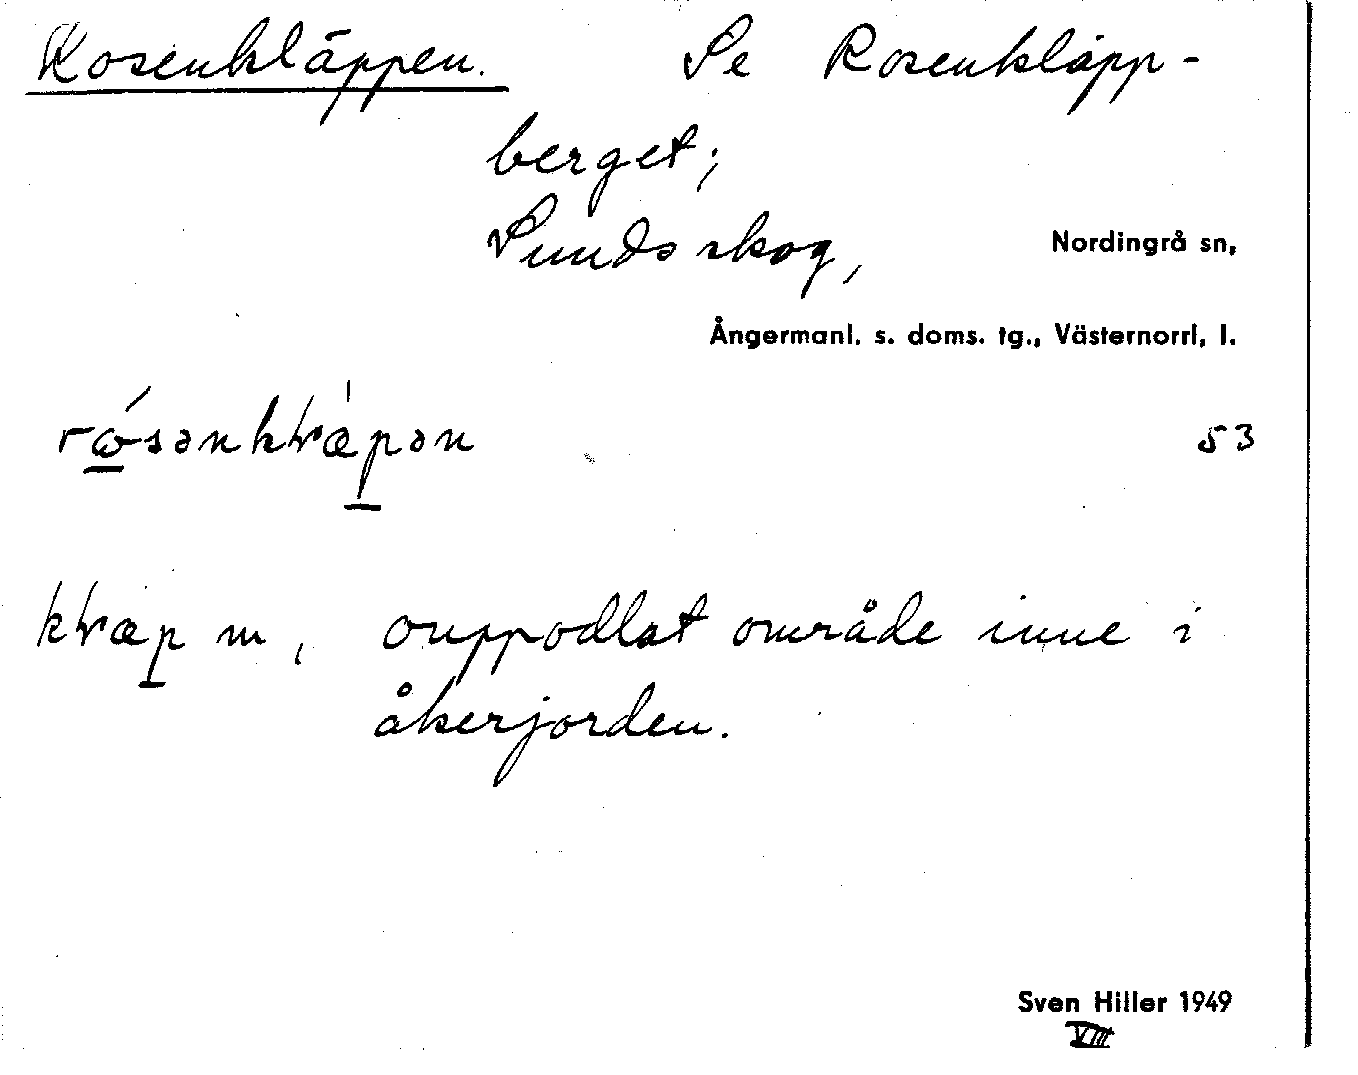 Rosenkläppen. Se Rosenkläpp-
berget;
Sundsskog, Nordingrå sn,
Ångermanl. s. doms. tg., Västernorrl. l.
53
m, ouppodlat område inne i
åkerjorden.
Sven Hiller 1949
VIII